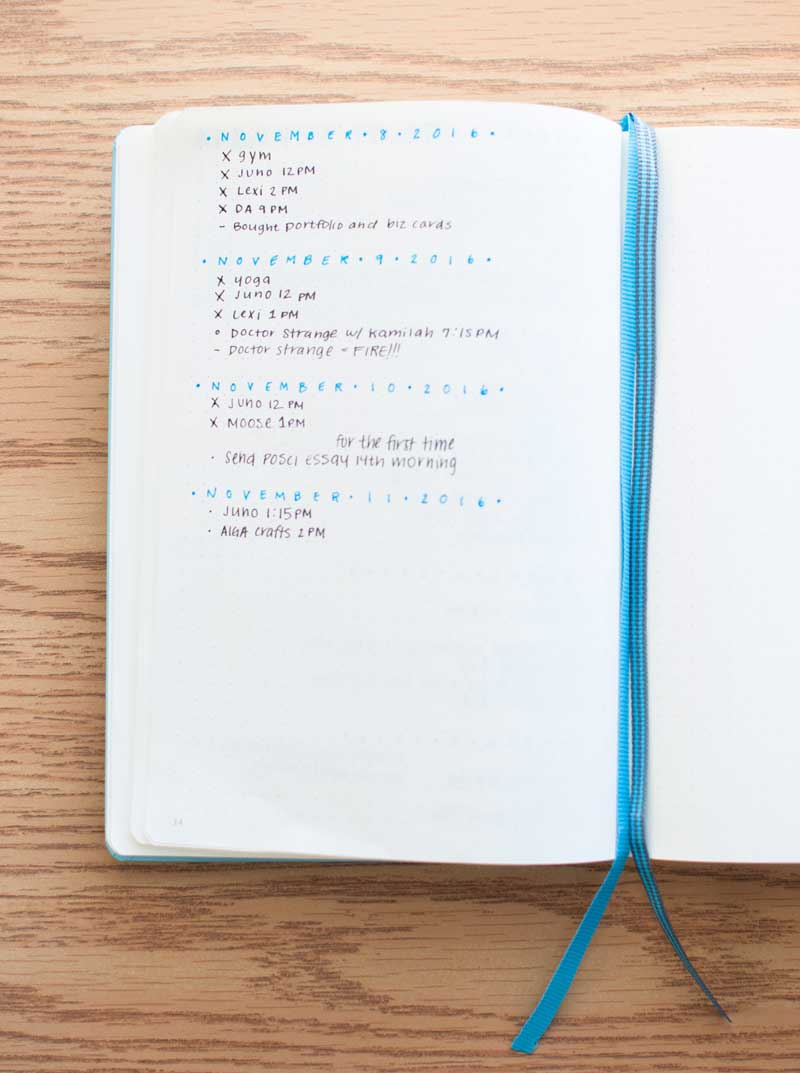 • NOVEMBER • 8 • 2016 •
X gym
X Juno 12PM
X Lexi 2 PM
X DA 9 PM
- Bought portfolio and biz cards
• NOVEMBER • 9 • 2016 •
X yoga
X Juno 12 PM
X Lexi 1 PM
o Doctor Strange w/ Kamilah 7:15PM
- Doctor Strange = FIRE!!!
• NOVEMBER • 10 • 2016 •
X Juno 12 PM
X MOOSE 1PM
for the first time
· Send POSCI Essay 14th morning
• NOVEMBER • 11 • 2016 •
· Juno 1:15PM
· AIGA crafts 2PM
34